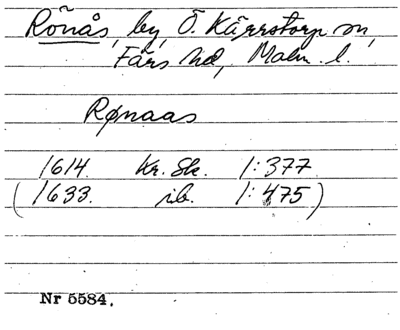 Rönås, by, Ö. Kärrstorp sn,
Färs hd, Malm. l.
Rønaas
1614. Kr. Sk. 1:377
(1633. ib. 1:475)
Nr 5584.